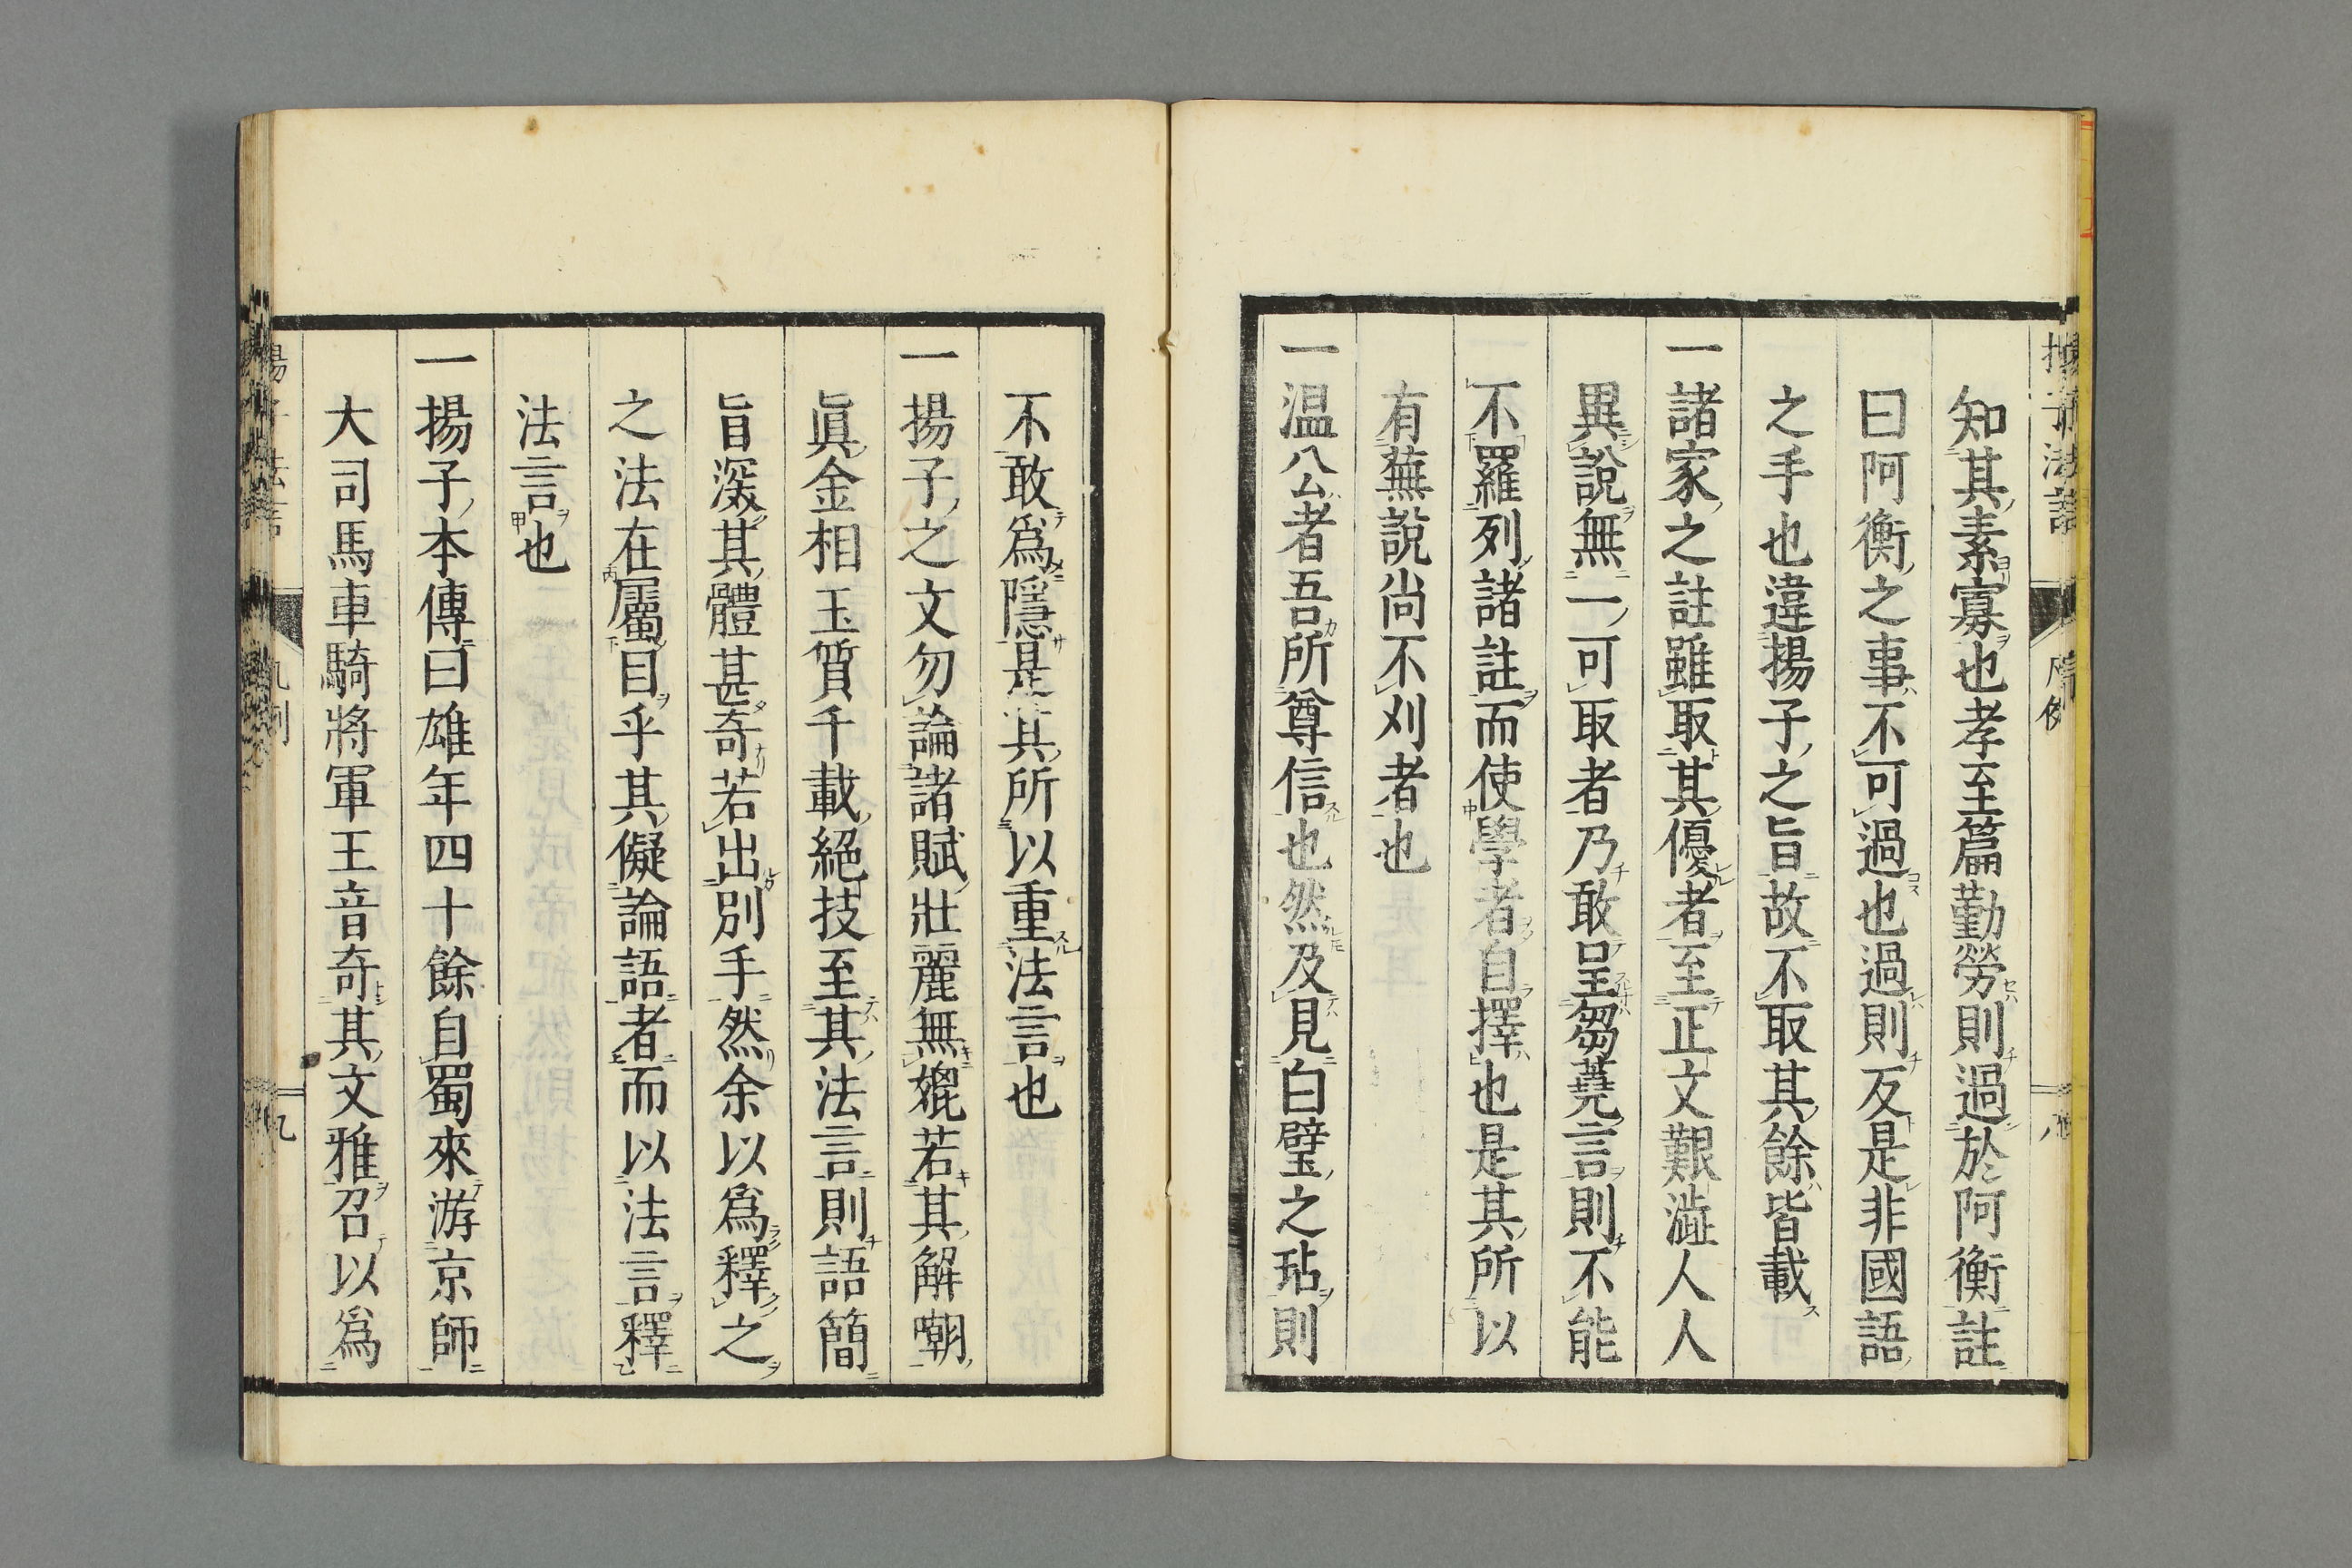 知其素寡也孝至篇勤勞則過於阿衡註
曰阿衡之事不可過也過則反是非國語
之手也違揚子之旨故不取其餘皆載
一諸家之註雖取其優者至正文艱澁人人
異說無一可取者乃敢呈芻蕘言則不能
不羅列諸註而使學者自擇也是其所以
有蕪說尚不刈者也
一温公者吾所尊信也然及見白璧之玷則
不敢爲隱是其所以重法言也
一揚子之文勿論諸賦壯麗無媲若其解嘲
眞金相玉質千載絕技至其法言則語簡
旨深其體甚奇若出別手然余以爲釋之
之法在屬目乎其儗論語者而以法言釋
法言也
一揚子本傳曰雄年四十餘自蜀來游京師
大司馬車騎將軍王音奇其文雅召以爲